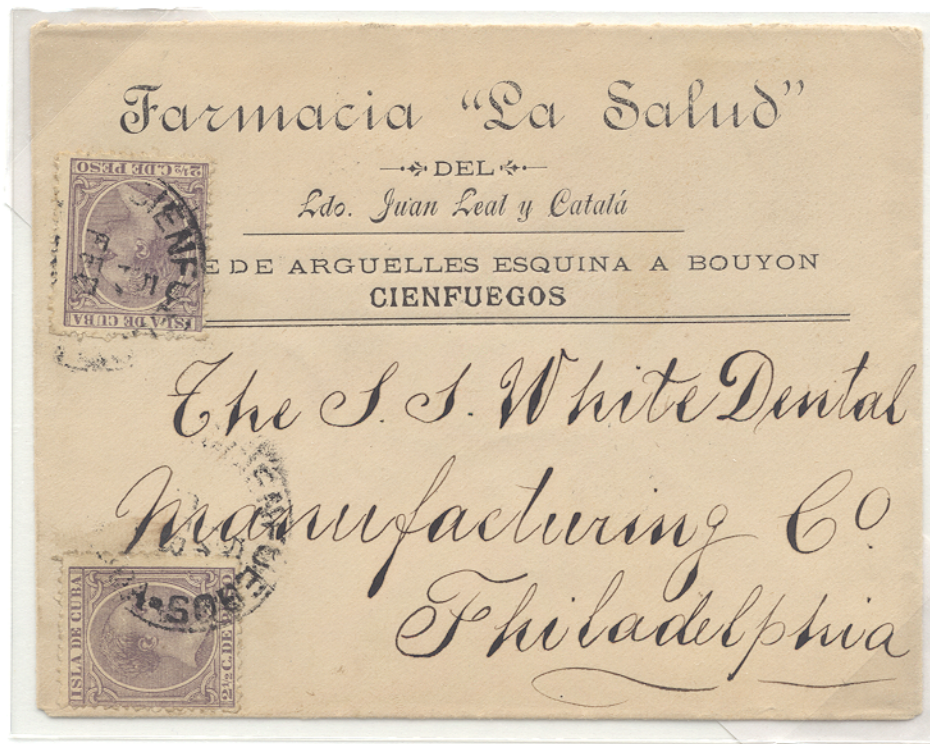 Farmacia "La Salud"
DEL
Ldo. Juan Leal y Catalá
E DE ARGUELLES ESQUINA A BOUYON
CIENFUEGOS
2½ C. DE PESO
ISLA DE CUBA
CIENFU
The S. S. White Dental
Manufacturing Co.
Philadelphia
ENFUEGOS
ISLA DE CUBA
2½ C. DE PESO